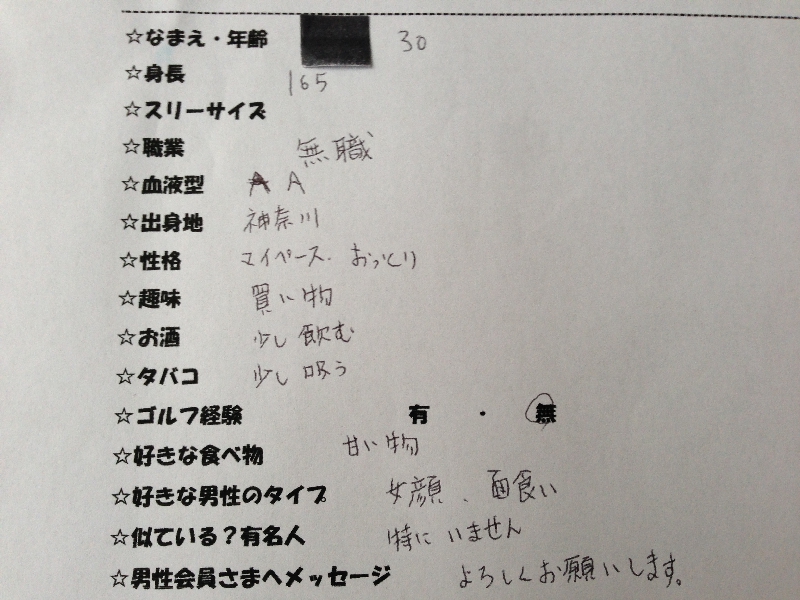 ☆なまえ・年齢 30
☆身長 165
☆スリーサイズ
☆職業 無職
☆血液型 A A
☆出身地 神奈川
☆性格 マイペース. おっとり
☆趣味 買い物
☆お酒 少し飲む
☆タバコ 少し吸う
☆ゴルフ経験 有 ・ 無
☆好きな食べ物 甘い物
☆好きな男性のタイプ 女顔、面食い
☆似ている?有名人 特にいません
☆男性会員さまへメッセージ よろしくお願いします。